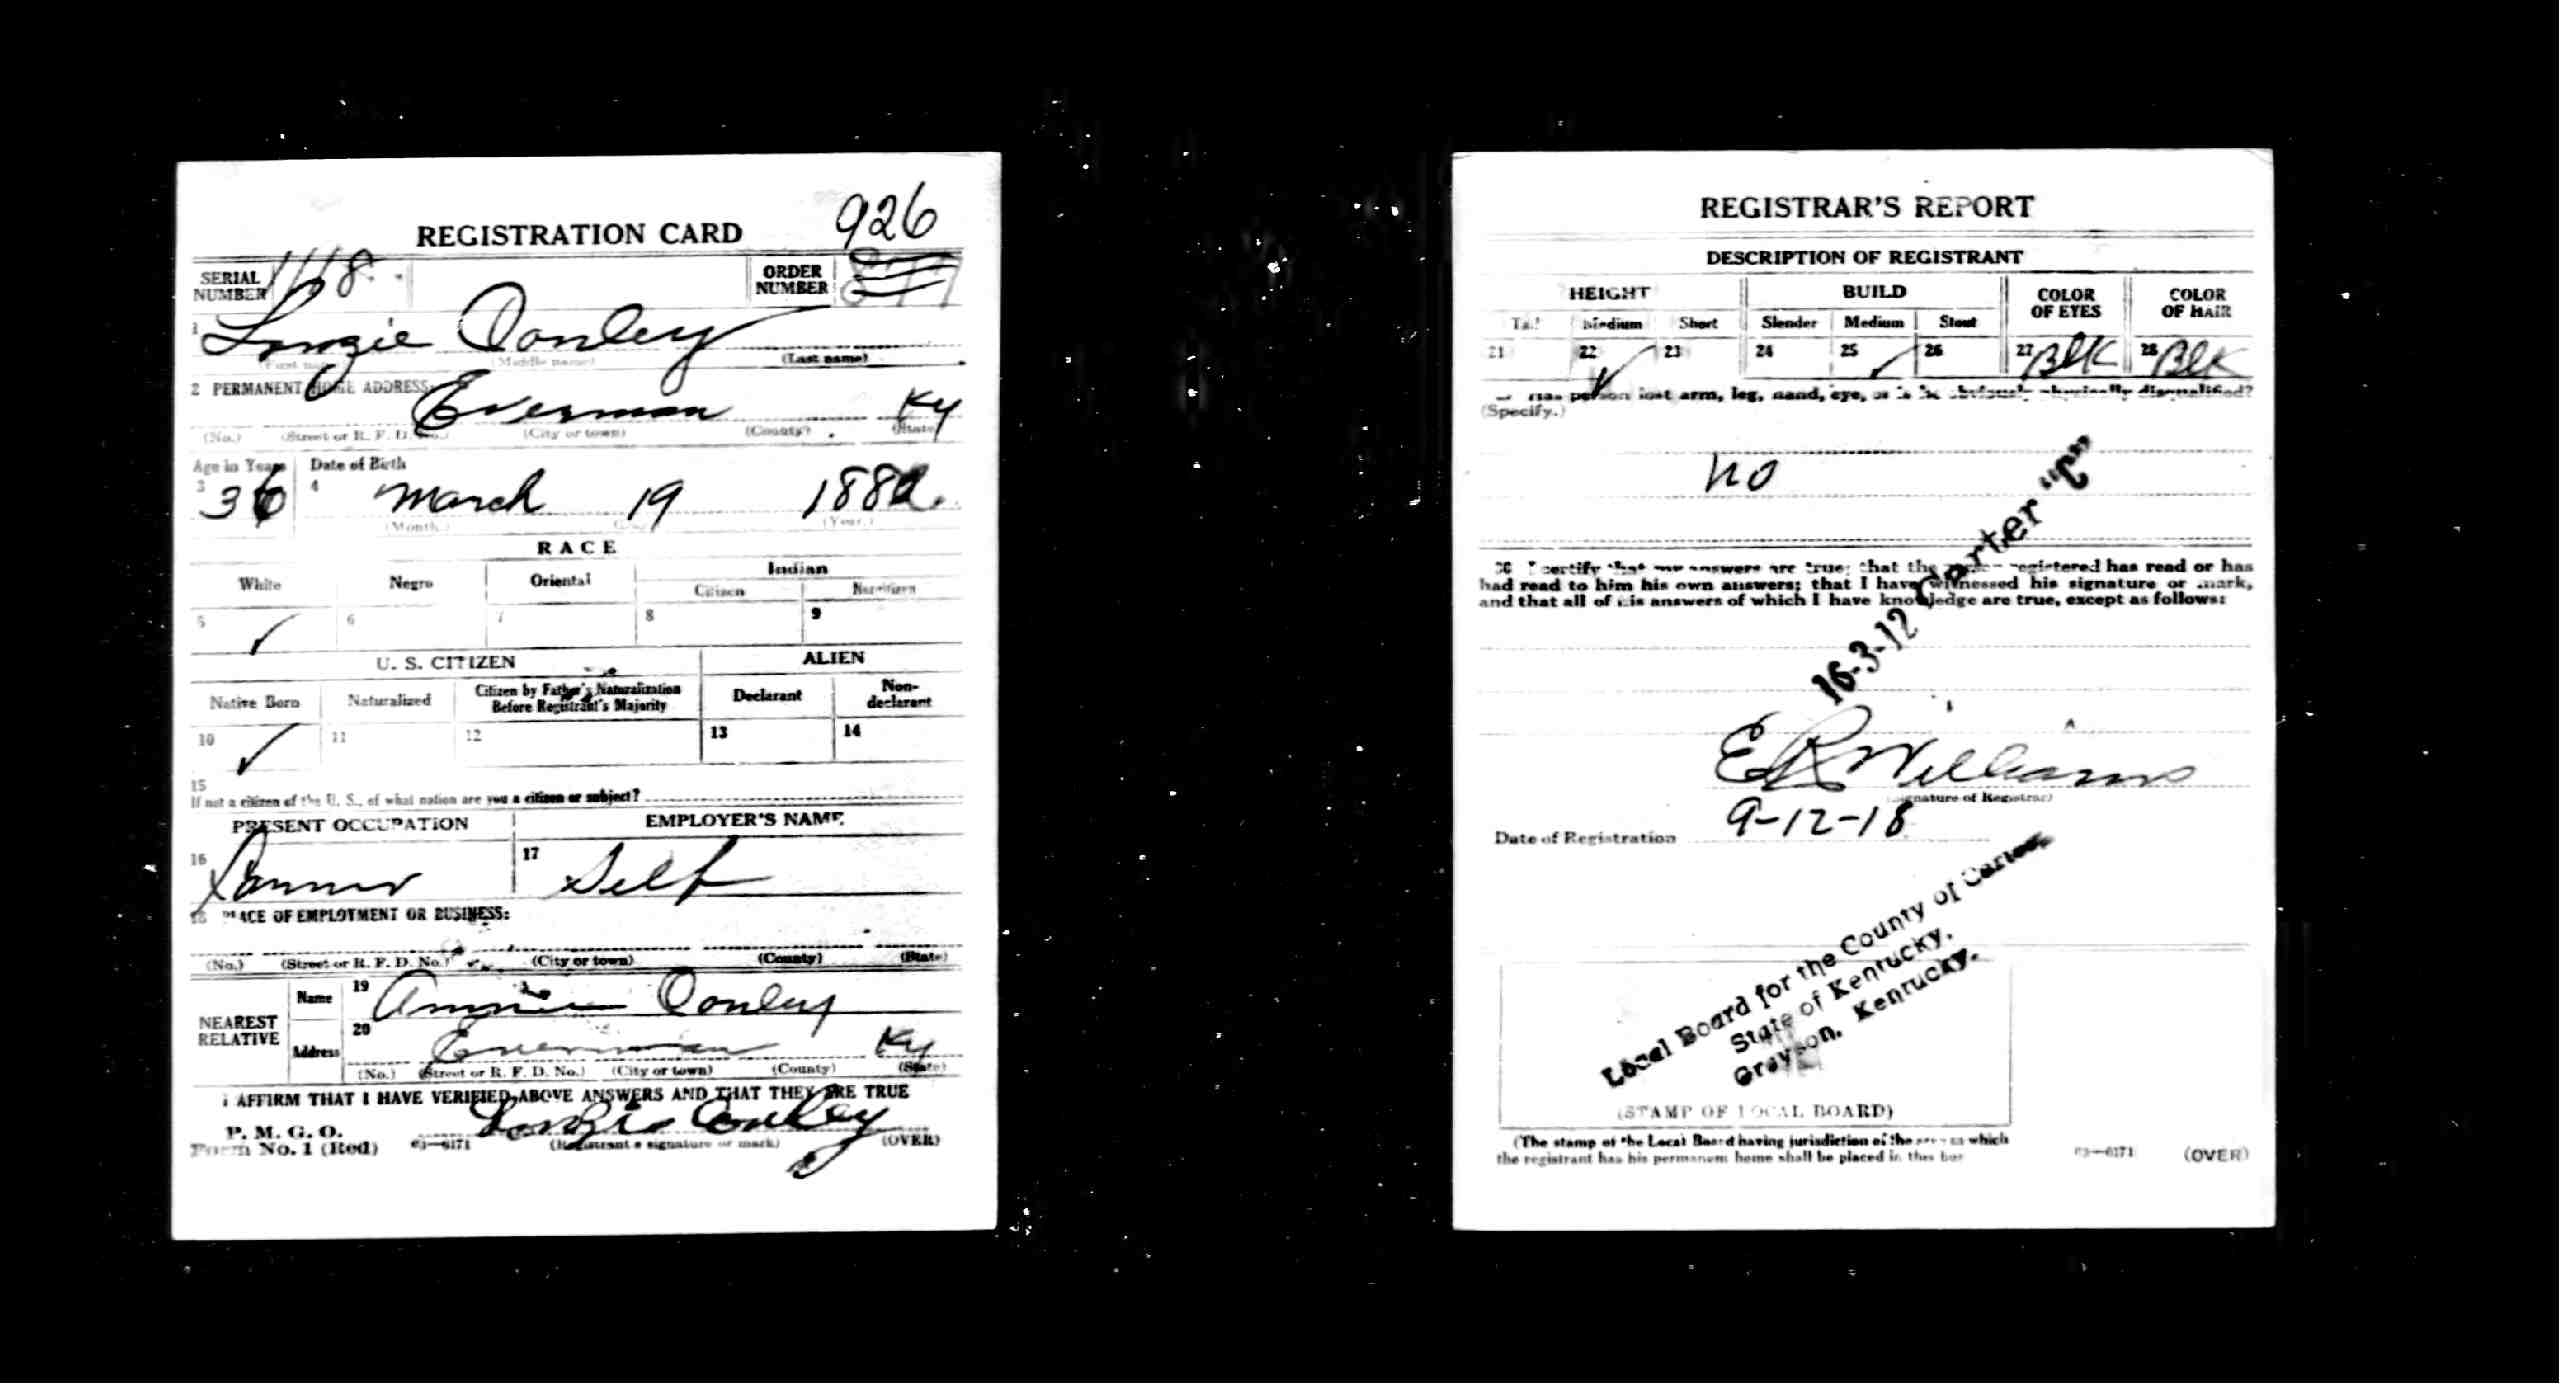 REGISTRATION CARD
926
SERIAL NUMBER 1168
ORDER NUMBER
1 Longie Conley
(First name) (Middle name) (Last name)
2 PERMANENT HOME ADDRESS:
Everman Ky
(No.) (Street or R. F. D. No.) (City or town) (County) (State)
Age in Years Date of Birth
3 36 4 March 19 1882
(Month.) (Day.) (Year.)
RACE
White Negro Oriental Indian
Citizen Noncitizen
5 ✓ 6 7 8 9
U. S. CITIZEN ALIEN
Native Born Naturalized Citizen by Father's Naturalization Before Registrant's Majority Declarant Non-declarant
10 ✓ 11 12 13 14
15
If not a citizen of the U. S., of what nation are you a citizen or subject?
PRESENT OCCUPATION EMPLOYER'S NAME
16 Farmer 17 Self
18 PLACE OF EMPLOYMENT OR BUSINESS:
(No.) (Street or R. F. D. No.) (City or town) (County) (State)
NEAREST RELATIVE
Name 19 Annie Conley
Address 20 Everman Ky
(No.) (Street or R. F. D. No.) (City or town) (County) (State)
I AFFIRM THAT I HAVE VERIFIED ABOVE ANSWERS AND THAT THEY ARE TRUE
P. M. G. O.
Form No. 1 (Red) 03—6171 Longie Conley
(Registrant's signature or mark) (OVER)
REGISTRAR'S REPORT
DESCRIPTION OF REGISTRANT
HEIGHT BUILD COLOR OF EYES COLOR OF HAIR
Tall Medium Short Slender Medium Stout
21 22 ✓ 23 24 25 ✓ 26 27 Blk 28 Blk
Has person lost arm, leg, hand, eye, or is he obviously physically disqualified?
(Specify.)
no
30 I certify that my answers are true; that the person registered has read or has
had read to him his own answers; that I have witnessed his signature or mark,
and that all of his answers of which I have knowledge are true, except as follows:
16-3-12 Carter "C"
E R Williams
(Signature of Registrar)
Date of Registration 9-12-18
Local Board for the County of Carter,
State of Kentucky,
Grayson, Kentucky.
(STAMP OF LOCAL BOARD)
(The stamp of the Local Board having jurisdiction of the area in which
the registrant has his permanent home shall be placed in this box
03—6171 (OVER)